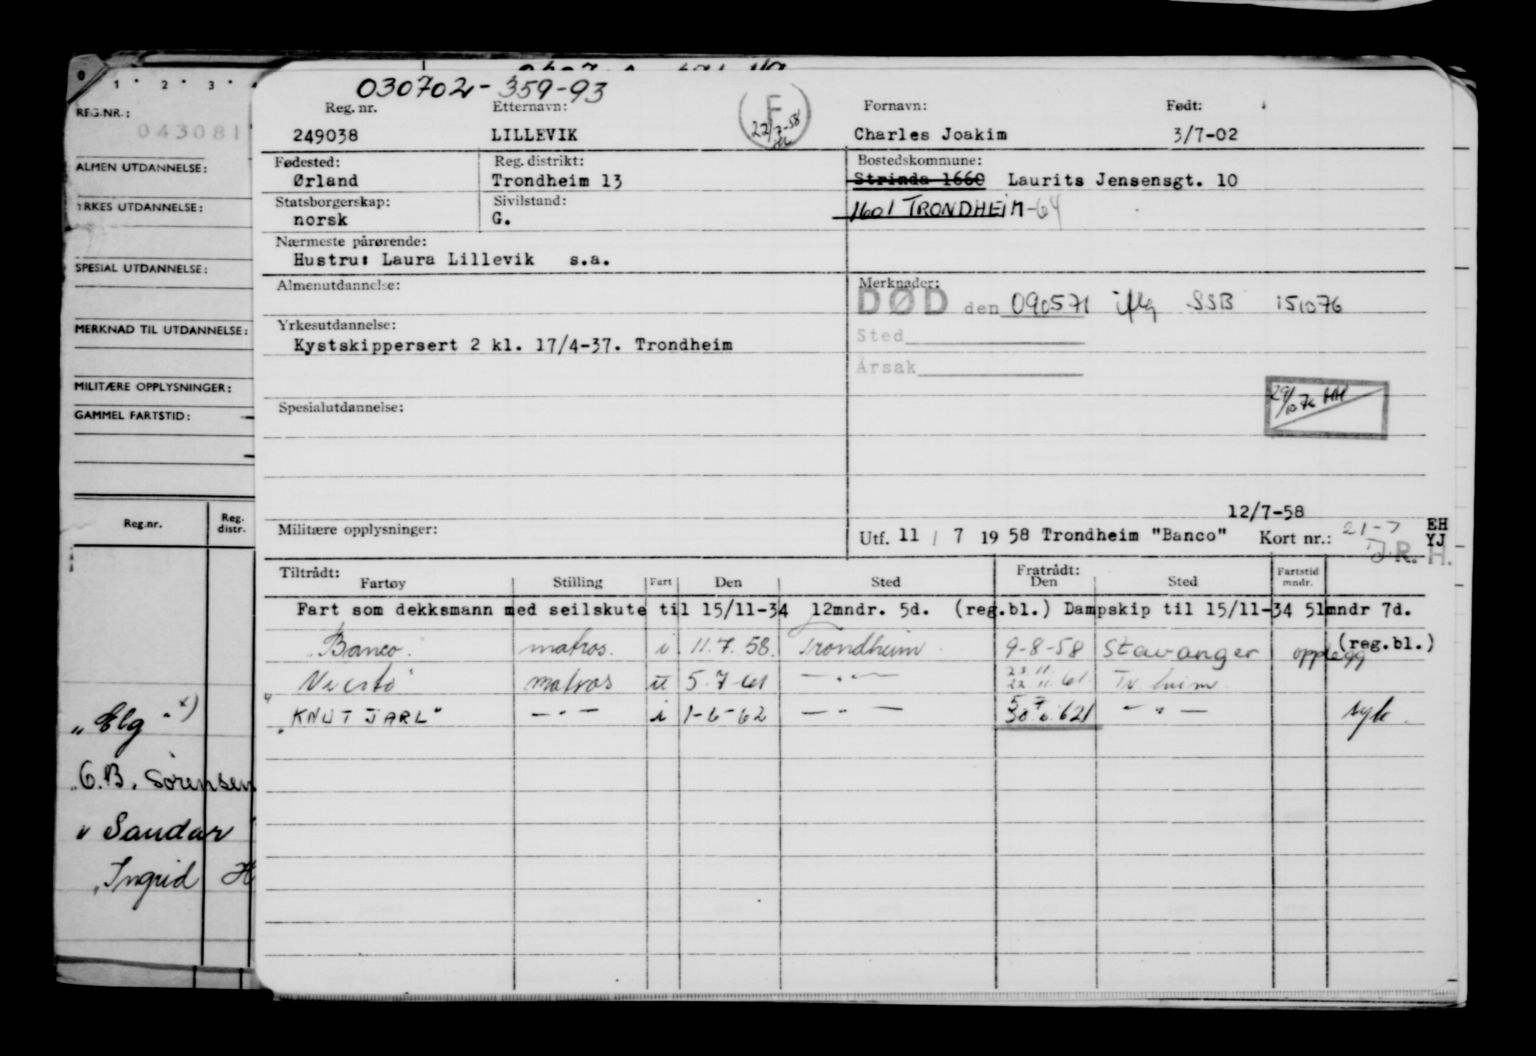 0
1 · 2 · 3 ·
REG.NR.:
043081
ALMEN UTDANNELSE:
YRKES UTDANNELSE:
SPESIAL UTDANNELSE:
MERKNAD TIL UTDANNELSE:
MILITÆRE OPPLYSNINGER:
GAMMEL FARTSTID:
Reg.nr. Reg. distr.
„ Elg "x)
„ C.B. Sørensen
„ Sandar
„ Ingrid H
030702-359-93
Reg. nr. Etternavn: Fornavn: Født:
249038 LILLEVIK F 22/7-58 Charles Joakim 3/7-02
Fødested: Reg. distrikt: Bostedskommune:
Ørland Trondheim 13 Strinda 1660 Laurits Jensensgt. 10
Statsborgerskap: Sivilstand:
norsk G. 1601 TRONDHEIM-64
Nærmeste pårørende:
Hustru: Laura Lillevik s.a.
Almenutdannelse: Merknader:
DØD den 090571 iflg SSB 151076
Yrkesutdannelse: Sted
Kystskippersert 2 kl. 17/4-37. Trondheim
Årsak
29/10 76
Spesialutdannelse:
12/7-58
Militære opplysninger: Utf. 11 / 7 19 58 Trondheim "Banco" Kort nr.: 21-7 EH
YJ
J.R. H.
Tiltrådt: Fartøy Stilling Fart Den Sted Fratrådt: Den Sted Fartstid mndr.
Fart som dekksmann med seilskute til 15/11-34 12mndr. 5d. (reg.bl.) Dampskip til 15/11-34 51mndr 7d.
(reg.bl.)
Banco. matros. i 11.7.58. Trondheim. 9-8-58 Stavanger opplegg
matros u 5-7-61 — " — 23.11
22.11.61 Tr.heim
"KNUT JARL" — " — i 1-6-62 — " — 5 7
30.6.62 — " — syk.